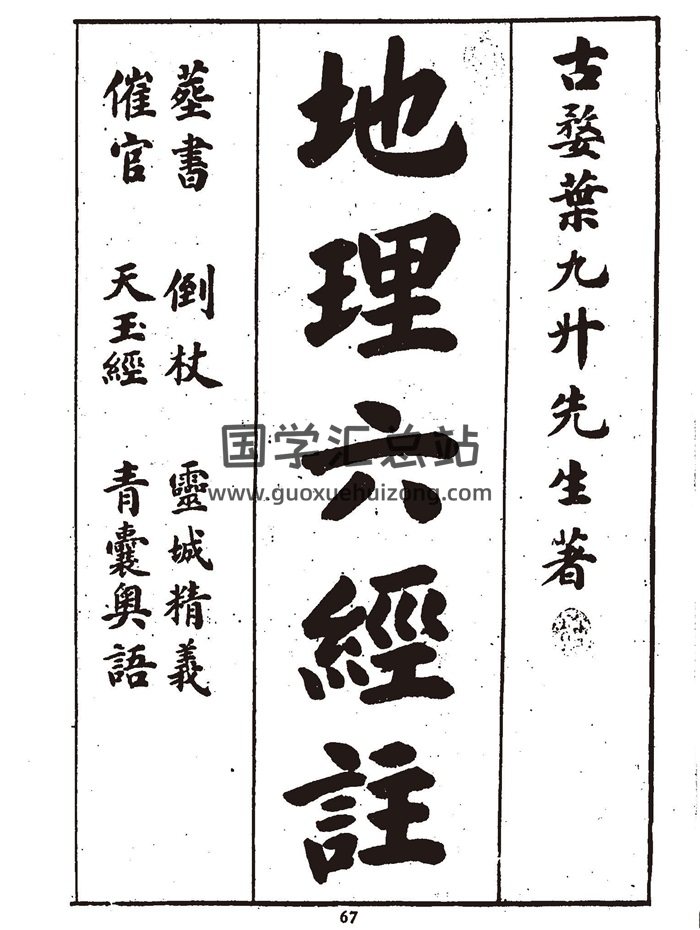 古婺葉九升先生著
地理六經註
葬書 倒杖 靈城精義
催官 天玉經 青囊奧語
国学汇总站
www.guoxuehuizong.com
67